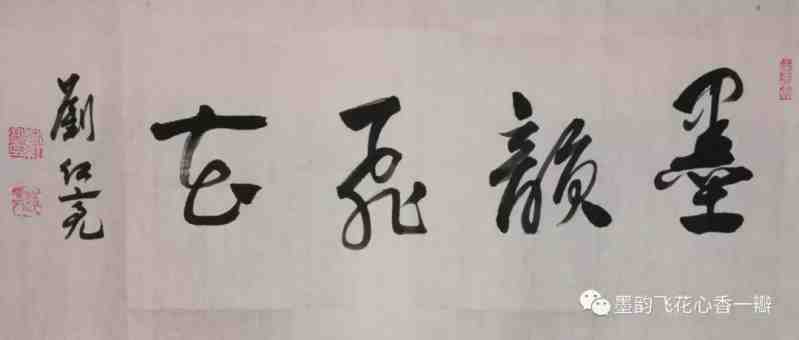 墨韻飛花
劉红亮
墨韵飞花心香一瓣